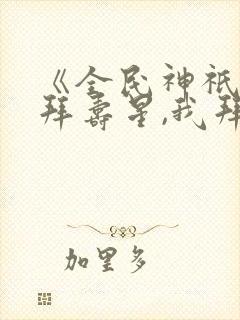 《全民神祇
拜寿星,我拜
加里多